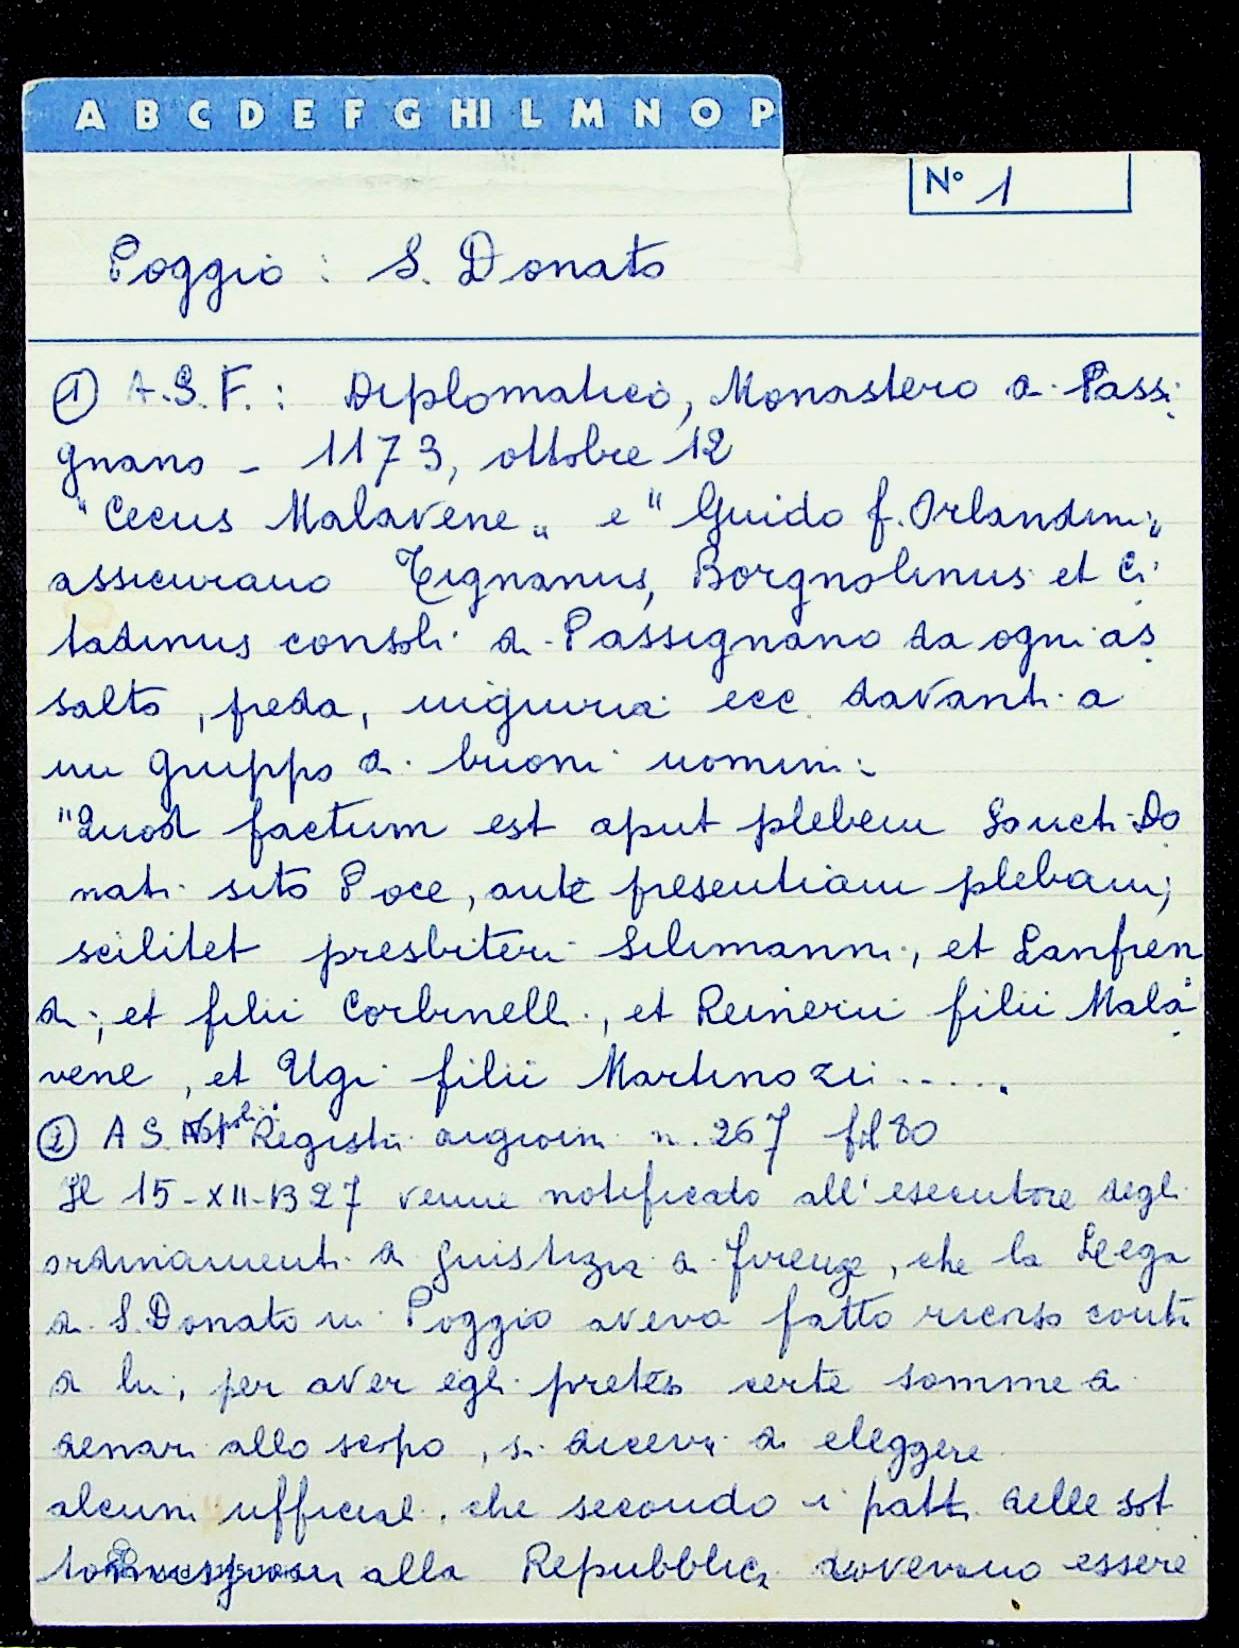 A B C D E F G HI L M N O P
N° 1
Poggio : S. Donato
① A.S.F. : Diplomatico, Monastero di Passi
gnano - 1173, ottobre 12
"Cecus Malavene" e "Guido f. Orlandini"
assicurano Tignanus, Borgnolinus et Ci
tadinus consoli di Passignano da ogni as
salto, preda, ingiuria ecc. davanti a
un gruppo di buoni uomini:
"Quod factum est aput plebem Sancti Do
nati sito Poce, ante presentiam plebani,
scilitet presbiteri Silimanni, et Lanfren
di, et filii Corbinelli, et Reinerii filii Mala
vene, et Ugi filii Martinozii .....
② A S Napoli Registri angioini n. 267 fol 80
Il 15-XII-1327 venne notificato all'esecutore degli
ordinamenti di giustizia di Firenze, che la Lega
di S. Donato in Poggio aveva fatto ricorso contro
di lui, per aver egli preteso certe somme di
denari allo scopo, si diceva di eleggere
alcuni ufficiali, che secondo i patti delle sot
alla Repubblica dovevano essere